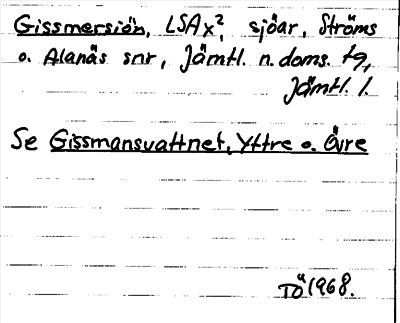 Gissmersjön, LSA x², sjöar, Ströms
o. Alanäs snr, Jämtl. n. doms. tg,
Jämtl. l.
Se Gissmansvattnet, Yttre o. Övre
TÖ 1968.